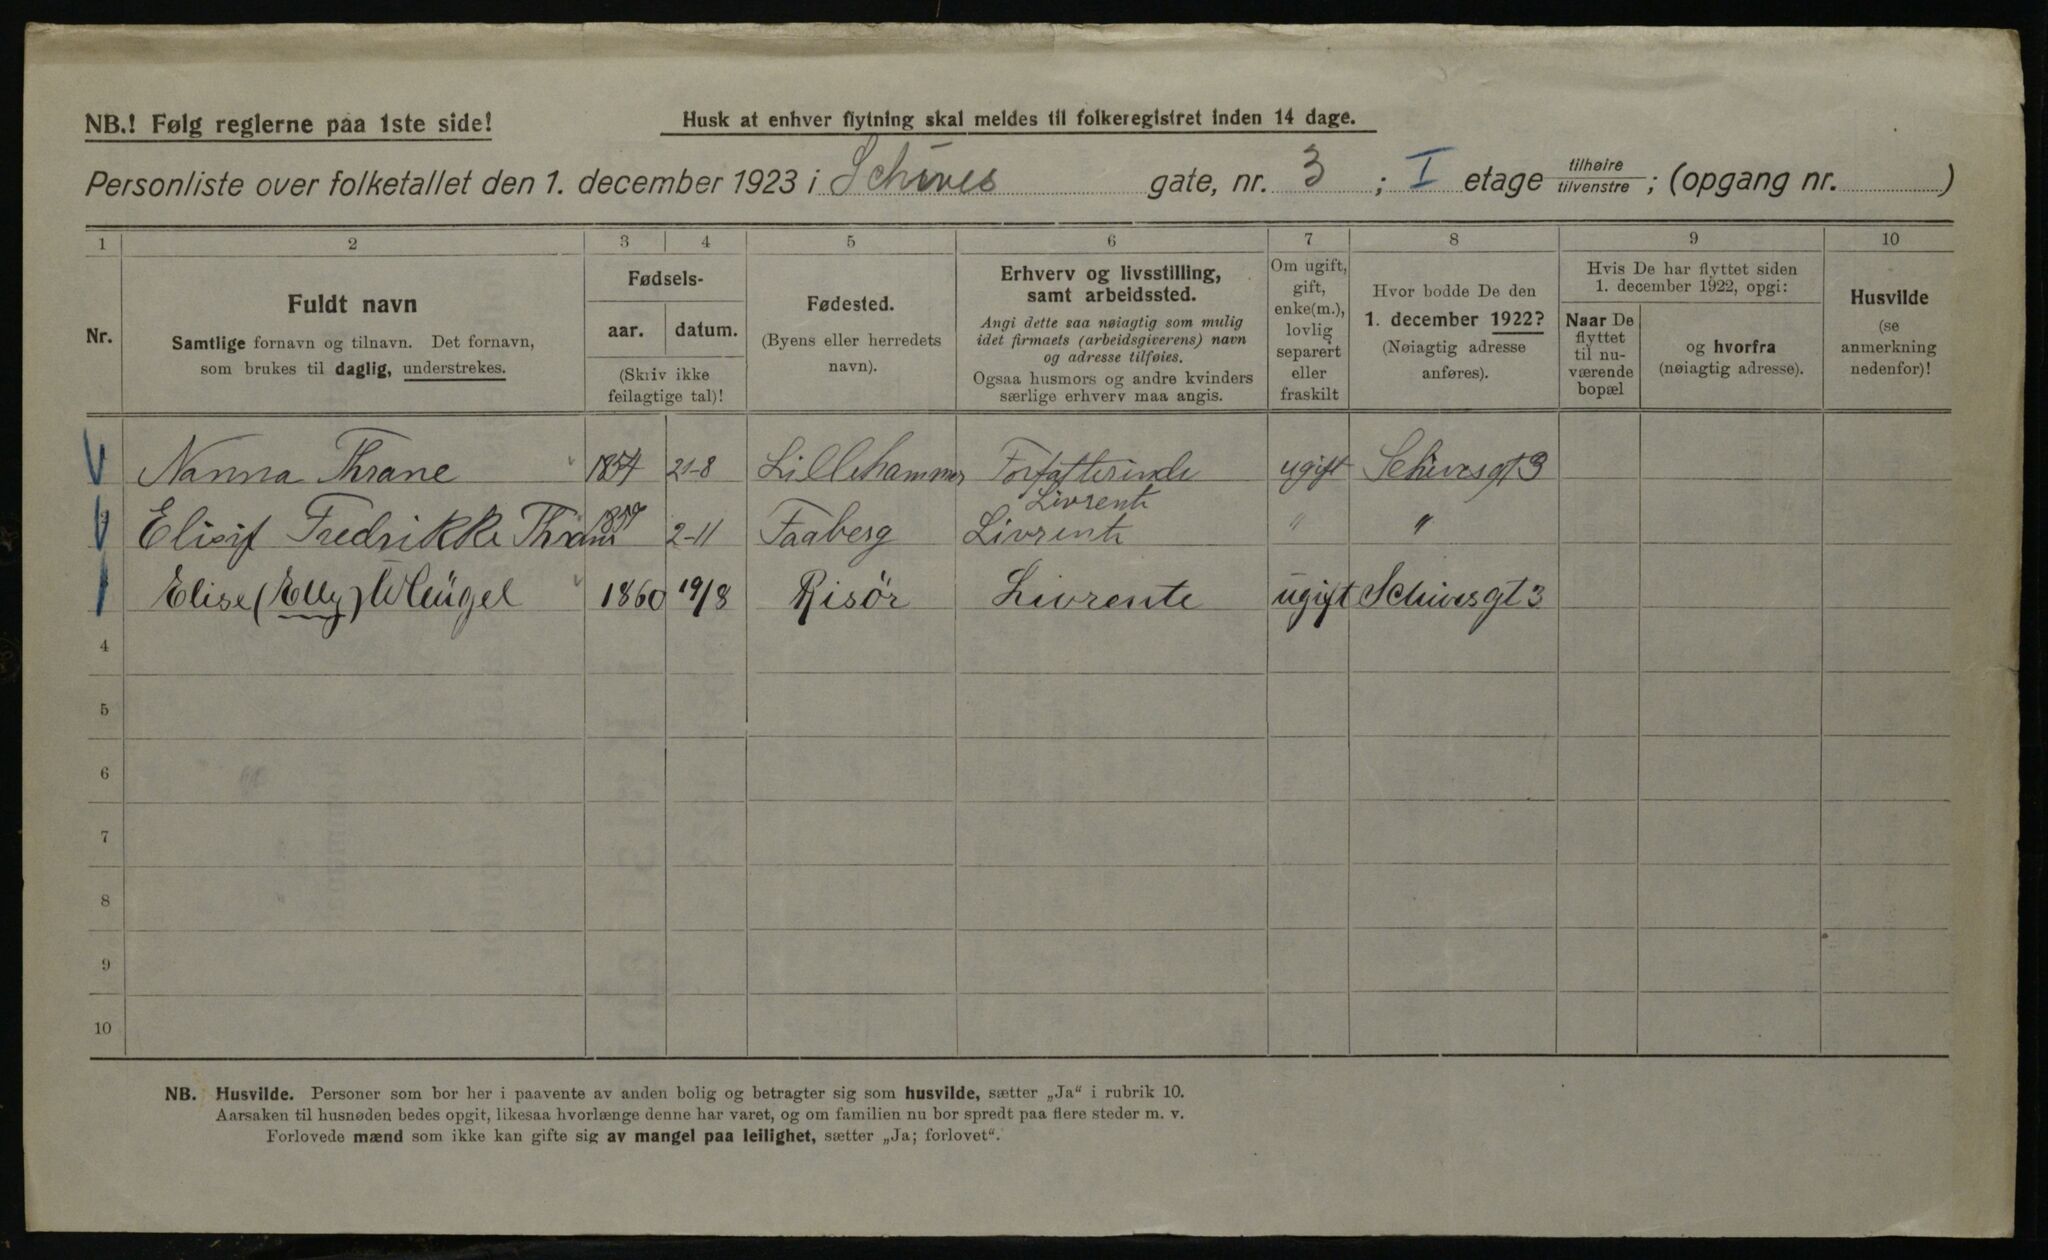 NB.! Følg reglerne paa 1ste side!
Husk at enhver flytning skal meldes til folkeregistret inden 14 dage.
Personliste over folketallet den 1. december 1923 i Schives gate, nr. 3 ; I etage tilhøire tilvenstre ; (opgang nr. )
1 2 3 4 5 6 7 8 9 10
Nr.
Fuldt navn
Samtlige fornavn og tilnavn. Det fornavn,
som brukes til daglig, understrekes.
Fødsels-
aar. datum.
(Skriv ikke
feilagtige tal)!
Fødested.
(Byens eller herredets
navn).
Erhverv og livsstilling,
samt arbeidssted.
Angi dette saa nøiagtig som mulig
idet firmaets (arbeidsgiverens) navn
og adresse tilføies.
Ogsaa husmors og andre kvinders
særlige erhverv maa angis.
Om ugift,
gift,
enke(m.),
lovlig
separert
eller
fraskilt
Hvor bodde De den
1. december 1922?
(Nøiagtig adresse
anføres).
Hvis De har flyttet siden
1. december 1922, opgi:
Naar De
flyttet
til nu-
værende
bopæl
og hvorfra
(nøiagtig adresse).
Husvilde
(se
anmerkning
nedenfor)!
Nanna Thrane 1854 21-8 Lillehammer Forfatterinde ugift Schivesgt 3
Livrente
Elisif Fredrikke Thrane 2-11 Faaberg Livrente " "
Elise (Elly) 1860 19/8 Risør Livrente ugift Schivesgt 3
4
5
6
7
8
9
10
NB. Husvilde. Personer som bor her i paavente av anden bolig og betragter sig som husvilde, sætter „Ja“ i rubrik 10.
Aarsaken til husnøden bedes opgit, likesaa hvorlænge denne har varet, og om familien nu bor spredt paa flere steder m. v.
Forlovede mænd som ikke kan gifte sig av mangel paa leilighet, sætter „Ja; forlovet“.